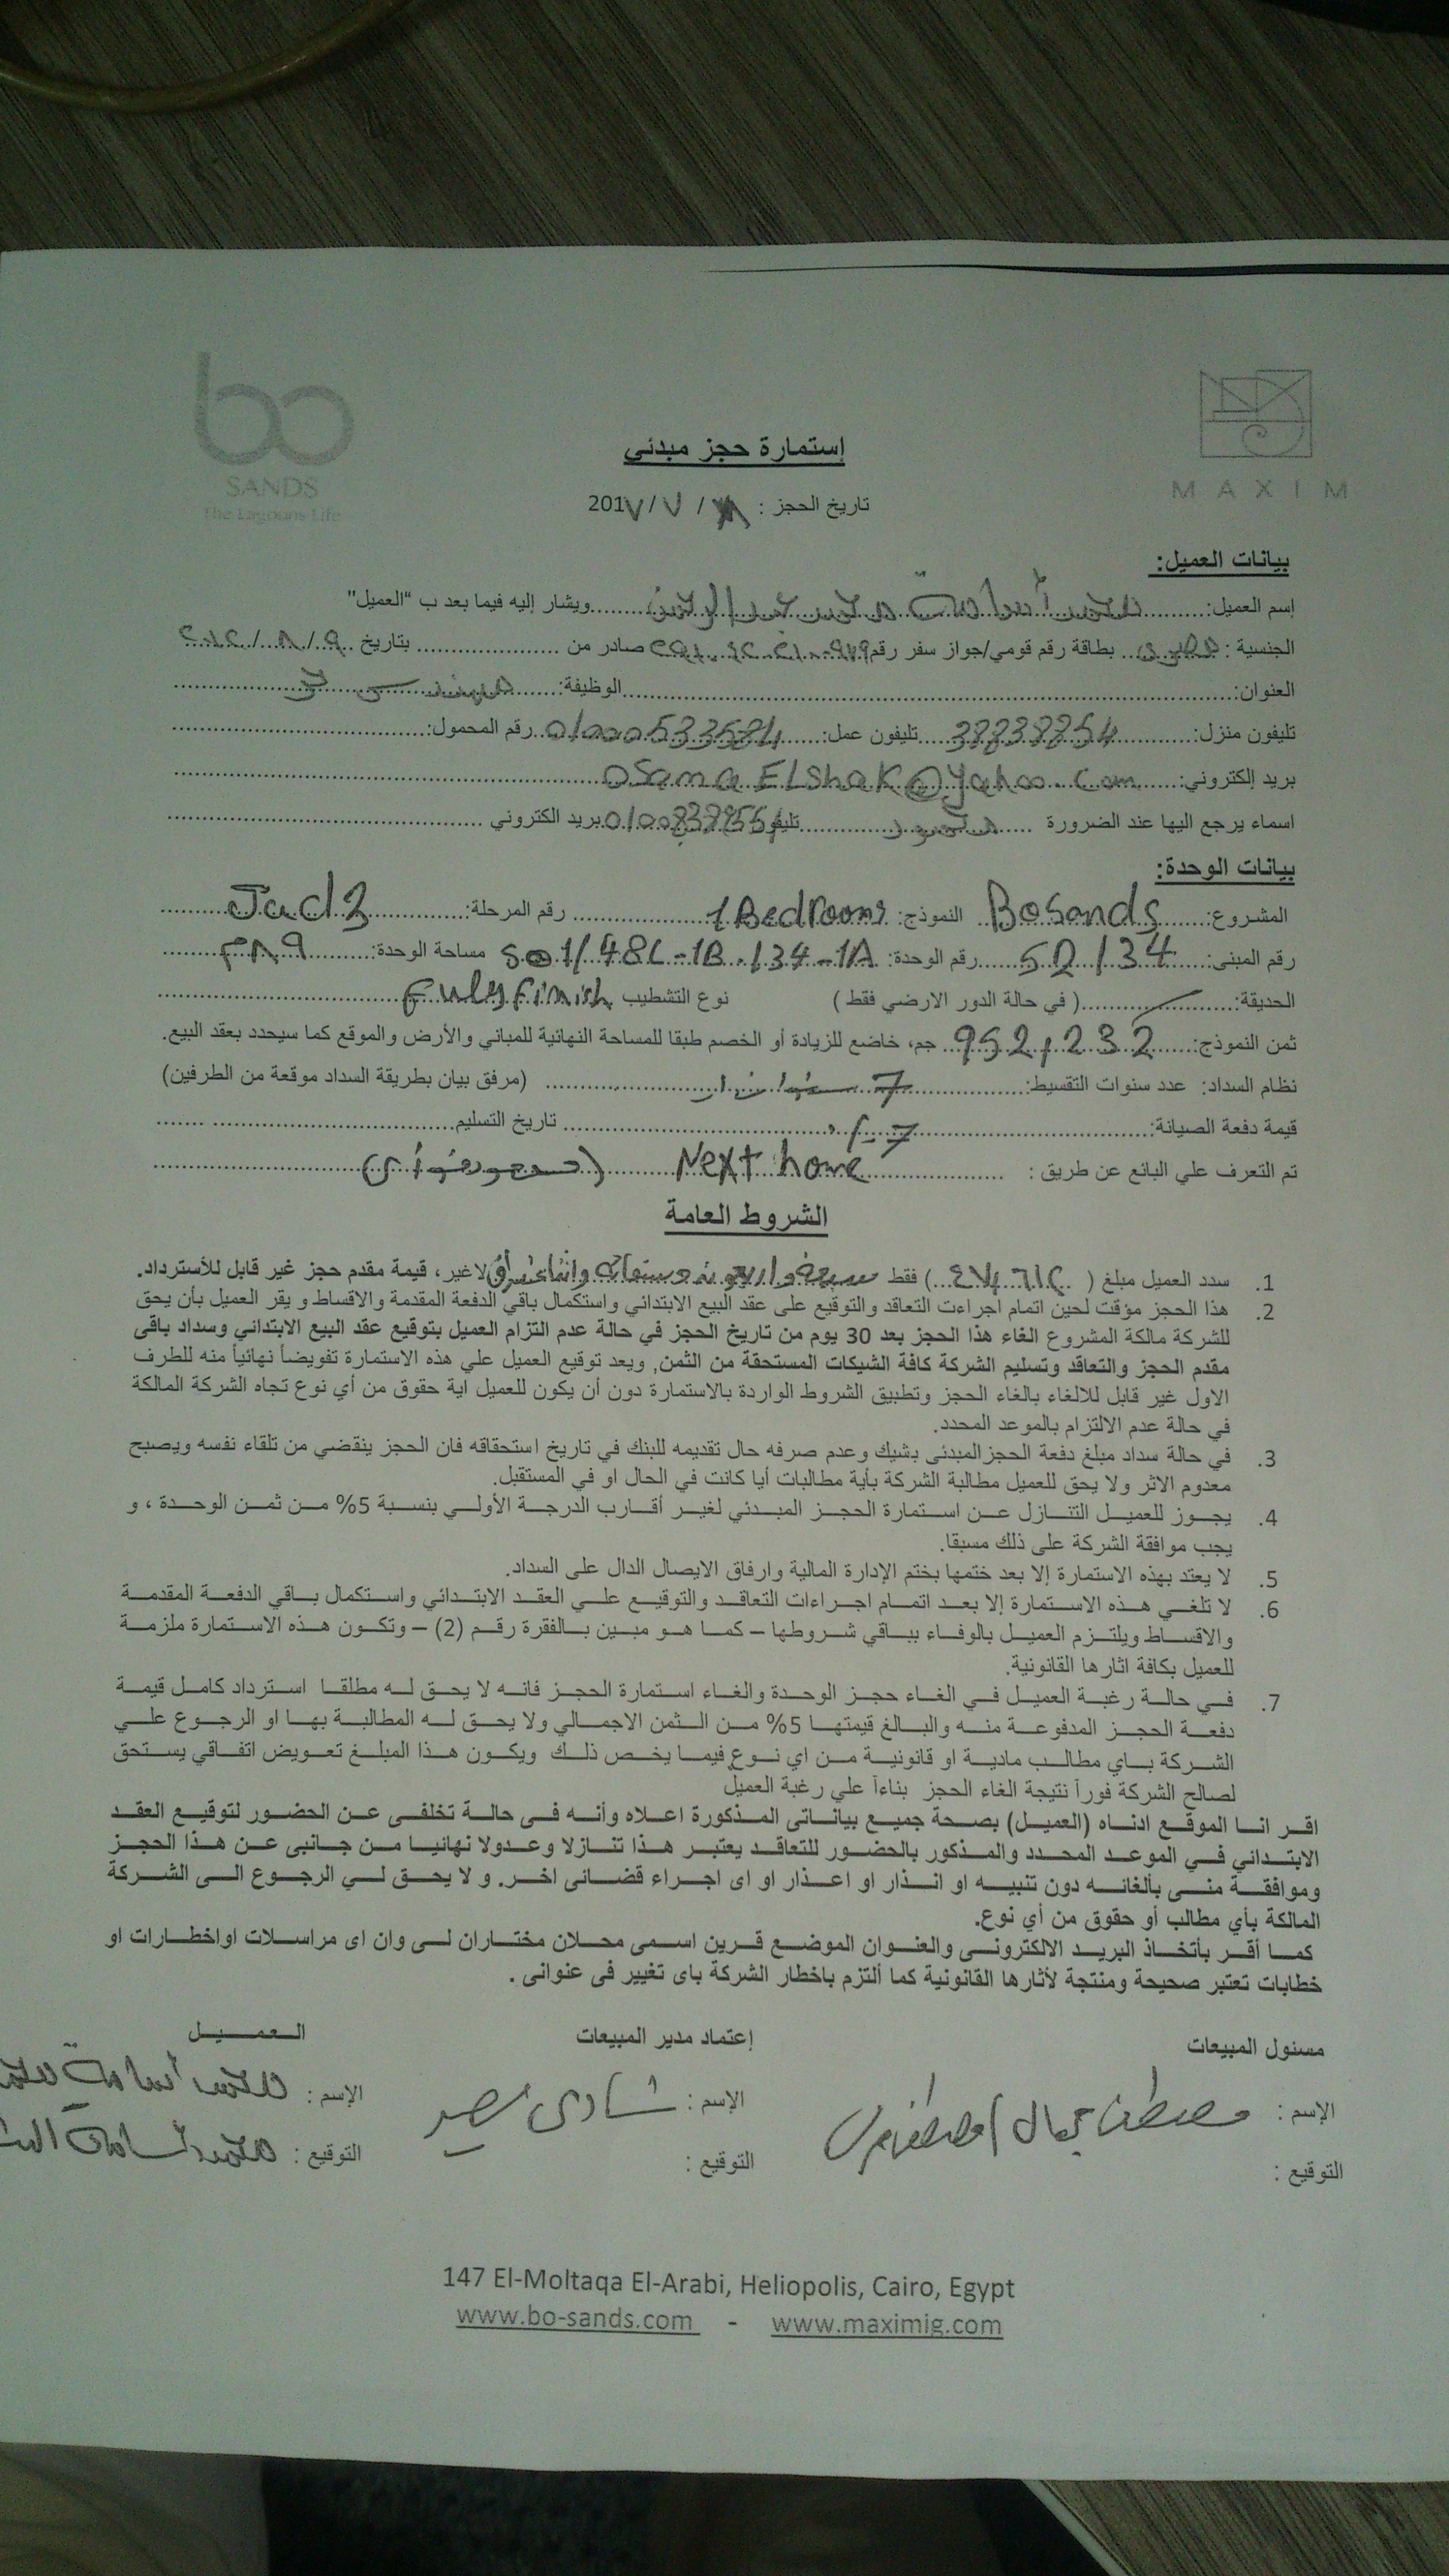 bo
SANDS
The Lagoons Life
MAXIM
إستمارة حجز مبدئي
تاريخ الحجز : / ٧ / 201٧
بيانات العميل:
إسم العميل: ويشار إليه فيما بعد ب "العميل"
الجنسية : مصرى بطاقة رقم قومي/جواز سفر رقم صادر من بتاريخ
العنوان: الوظيفة:
تليفون منزل: تليفون عمل: رقم المحمول:
بريد إلكتروني: Osama ELShak@yahoo.com
اسماء يرجع اليها عند الضرورة تليفون بريد الكتروني
بيانات الوحدة:
المشروع: Bosands النموذج: 1 Bedrooms رقم المرحلة:
رقم المبنى: رقم الوحدة: مساحة الوحدة:
الحديقة: ( في حالة الدور الارضي فقط ) نوع التشطيب Fuly Finish
ثمن النموذج: 952,232 جم، خاضع للزيادة أو الخصم طبقا للمساحة النهائية للمباني والأرض والموقع كما سيحدد بعقد البيع.
نظام السداد: عدد سنوات التقسيط: 7 سنوات (مرفق بيان بطريقة السداد موقعة من الطرفين)
قيمة دفعة الصيانة: تاريخ التسليم
تم التعرف علي البائع عن طريق : Next home
الشروط العامة
1. سدد العميل مبلغ ( ٤٧٦١٢ ) فقط لاغير، قيمة مقدم حجز غير قابل للأسترداد.
2. هذا الحجز مؤقت لحين اتمام اجراءت التعاقد والتوقيع على عقد البيع الابتدائي واستكمال باقي الدفعة المقدمة والاقساط و يقر العميل بأن يحق
للشركة مالكة المشروع الغاء هذا الحجز بعد 30 يوم من تاريخ الحجز في حالة عدم التزام العميل بتوقيع عقد البيع الابتداني وسداد باقى
مقدم الحجز والتعاقد وتسليم الشركة كافة الشيكات المستحقة من الثمن, ويعد توقيع العميل علي هذه الاستمارة تفويضاً نهائياً منه للطرف
الاول غير قابل للالغاء بالغاء الحجز وتطبيق الشروط الواردة بالاستمارة دون أن يكون للعميل اية حقوق من أي نوع تجاه الشركة المالكة
في حالة عدم الالتزام بالموعد المحدد.
3. في حالة سداد مبلغ دفعة الحجزالمبدئى بشيك وعدم صرفه حال تقديمه للبنك في تاريخ استحقاقه فان الحجز ينقضي من تلقاء نفسه ويصبح
معدوم الاثر ولا يحق للعميل مطالبة الشركة بأية مطالبات أيا كانت في الحال او في المستقبل.
4. يجوز للعميل التنازل عن استمارة الحجز المبدئي لغير أقارب الدرجة الأولي بنسبة 5% من ثمن الوحدة ، و
يجب موافقة الشركة على ذلك مسبقا.
5. لا يعتد بهذه الاستمارة إلا بعد ختمها بختم الإدارة المالية وارفاق الايصال الدال على السداد.
6. لا تلغي هذه الاستمارة إلا بعد اتمام اجراءات التعاقد والتوقيع علي العقد الابتدائي واستكمال باقي الدفعة المقدمة
والاقساط ويلتزم العميل بالوفاء بباقي شروطها – كما هو مبين بالفقرة رقم (2) – وتكون هذه الاستمارة ملزمة
للعميل بكافة اثارها القانونية.
7. في حالة رغبة العميل في الغاء حجز الوحدة والغاء استمارة الحجز فانه لا يحق له مطلقا استرداد كامل قيمة
دفعة الحجز المدفوعة منه والبالغ قيمتها 5% من الثمن الاجمالي ولا يحق له المطالبة بها او الرجوع علي
الشركة باي مطالب مادية او قانونية من اي نوع فيما يخص ذلك ويكون هذا المبلغ تعويض اتفاقي يستحق
لصالح الشركة فوراً نتيجة الغاء الحجز بناءاً علي رغبة العميل
اقر انا الموقع ادناه (العميل) بصحة جميع بياناتى المذكورة اعلاه وأنه فى حالة تخلفى عن الحضور لتوقيع العقد
الابتداني في الموعد المحدد والمذكور بالحضور للتعاقد يعتبر هذا تنازلا وعدولا نهائيا من جانبى عن هذا الحجز
وموافقة منى بألغائه دون تنبيه او انذار او اعذار او اى اجراء قضائى اخر. و لا يحق لي الرجوع الى الشركة
المالكة بأي مطالب أو حقوق من أي نوع.
كما أقر بأتخاذ البريد الالكترونى والعنوان الموضع قرين اسمى محلان مختاران لى وان اى مراسلات اواخطارات او
خطابات تعتبر صحيحة ومنتجة لأثارها القانونية كما ألتزم باخطار الشركة باى تغيير فى عنوانى .
مسئول المبيعات إعتماد مدير المبيعات العميل
الإسم : مصطفى جمال الإسم : شادى الإسم :
التوقيع : التوقيع : التوقيع :
147 El-Moltaqa El-Arabi, Heliopolis, Cairo, Egypt
www.bo-sands.com - www.maximig.com